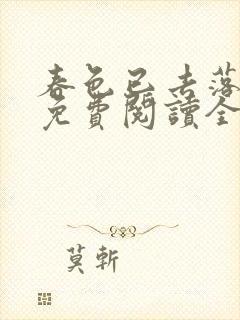 春色已去落
免費閱讀全
莫斬